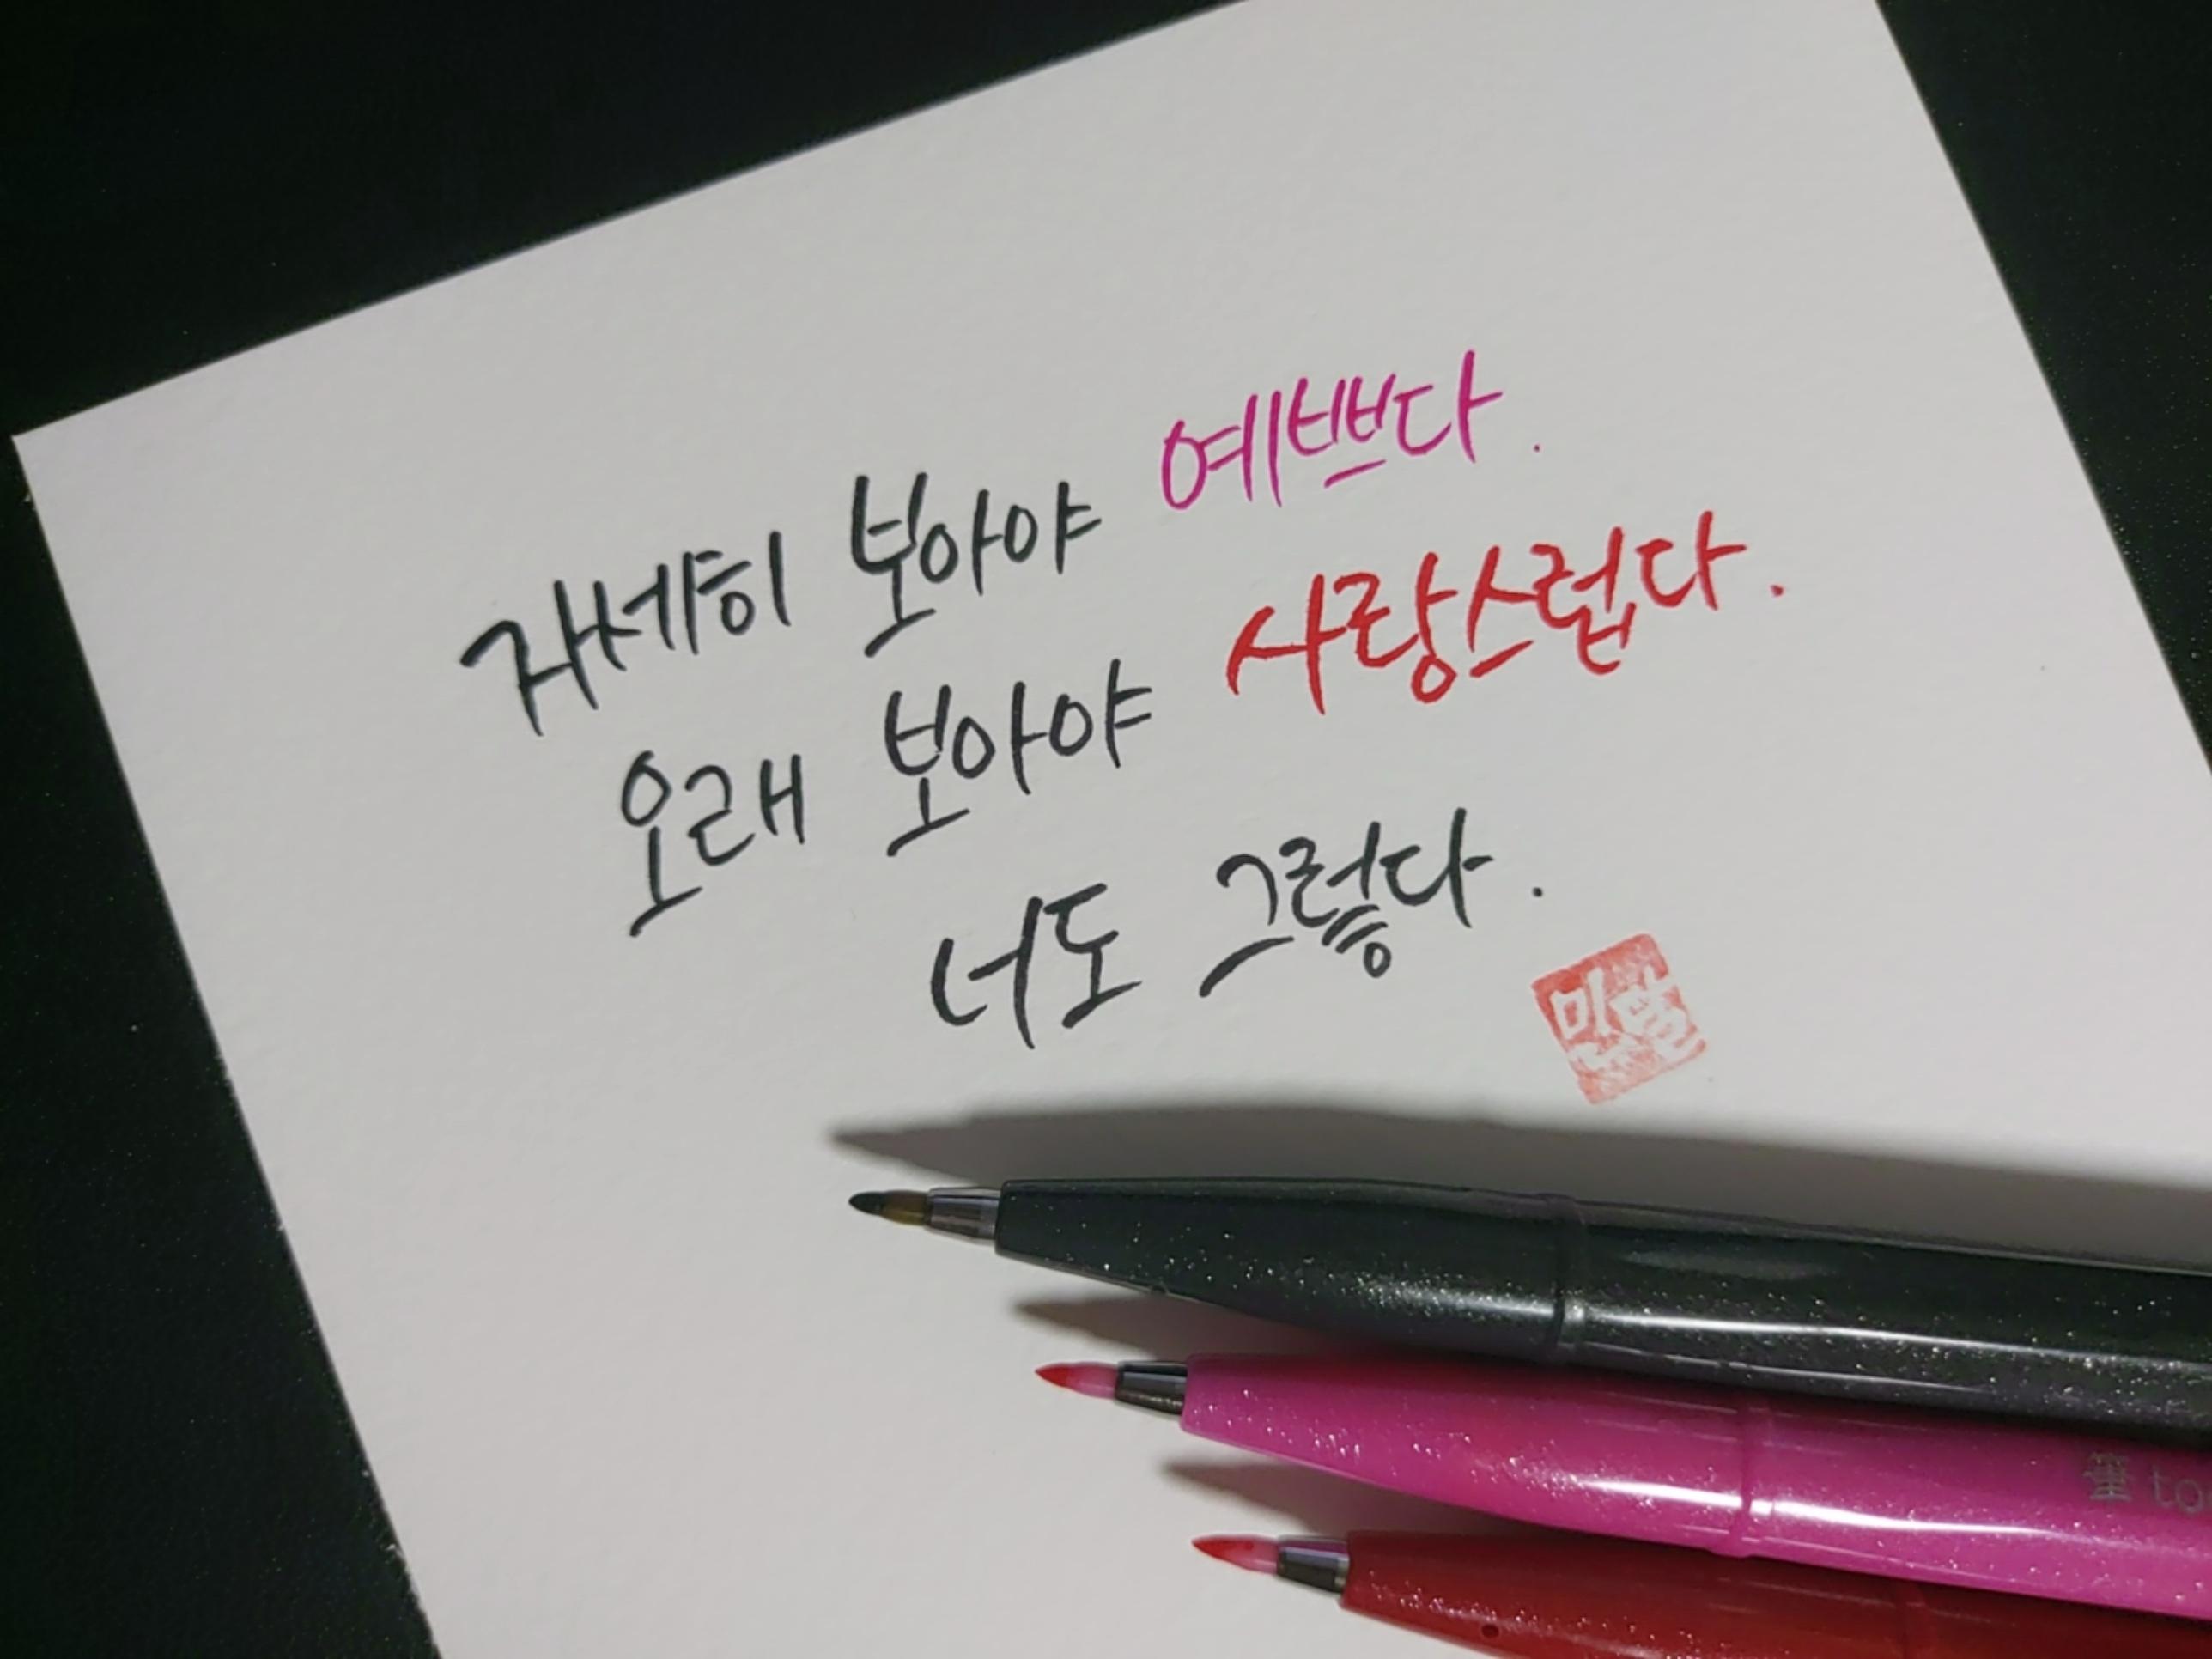 자세히 보아야 예쁘다.
오래 보아야 사랑스럽다.
너도 그렇다.
筆 to